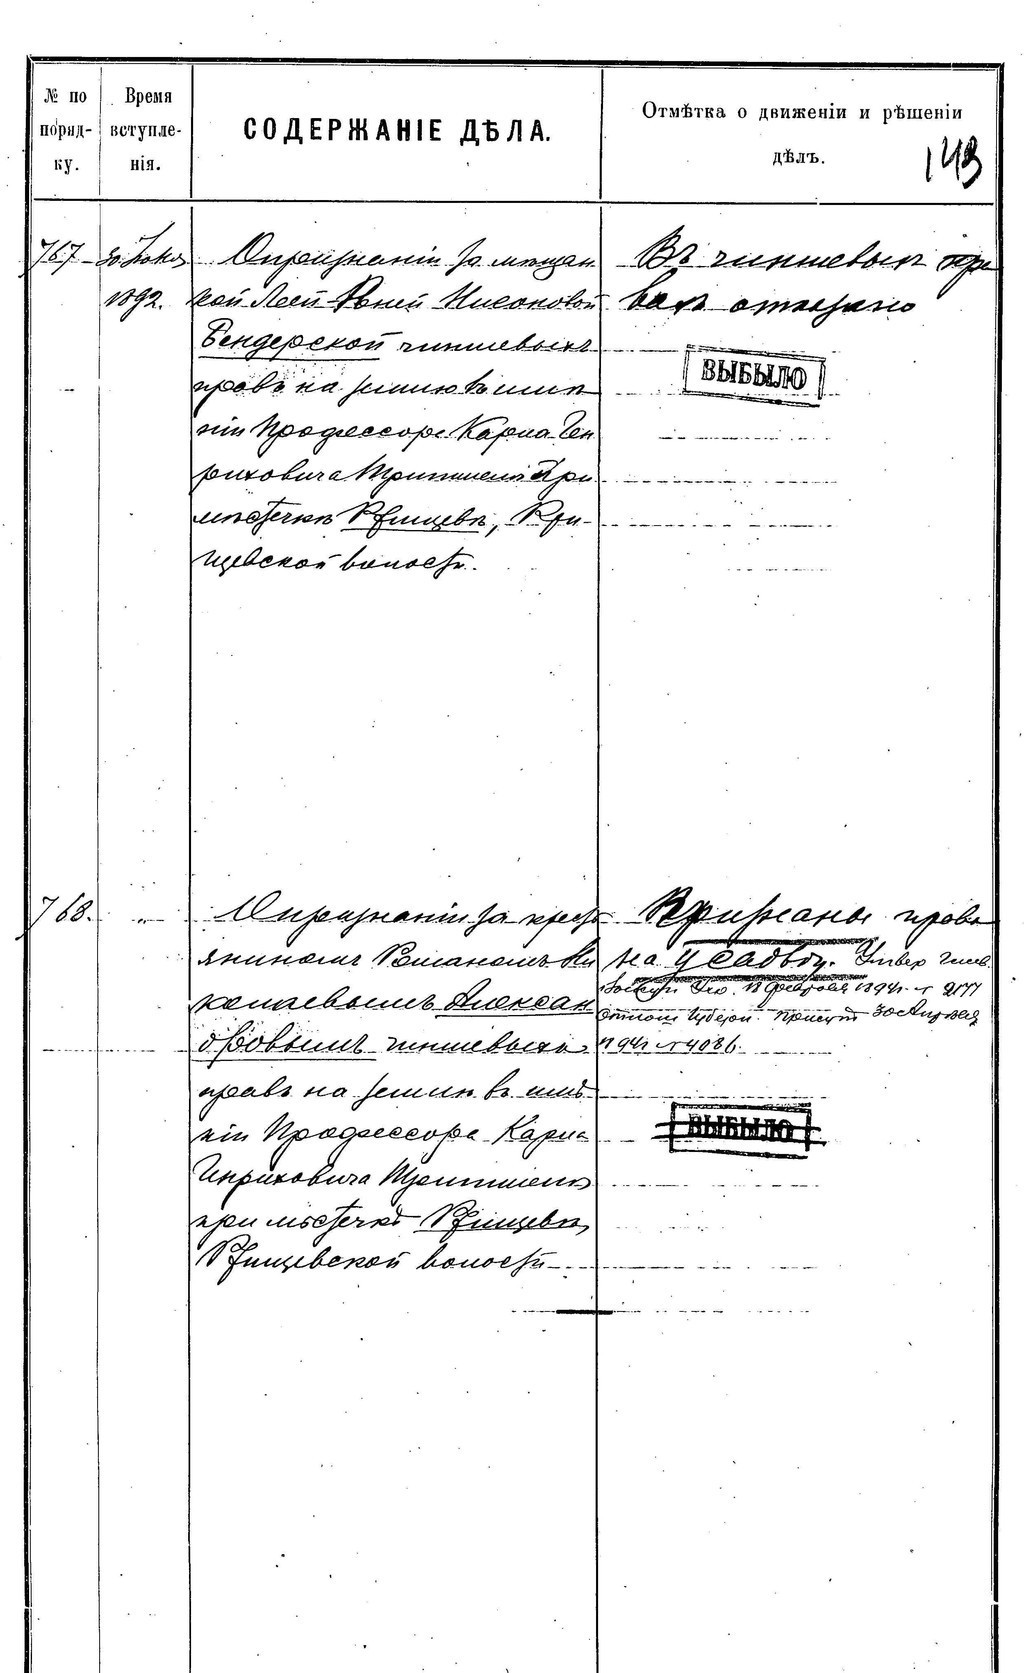 № по поряд-ку.
Время вступле-нія.
СОДЕРЖАНІЕ ДѢЛА.
Отмѣтка о движеніи и рѣшеніи дѣлъ.
143
767
1892.
О признаніи за мѣщан
кой Нисоновой
Бендерской чиншевыхъ
правъ на землю въ имѣ
ніи Профессора Карла Ген
риховича при
мѣстечкѣ Ржищевѣ, Ржи-
щевской волости.
Въ чиншевыхъ пра
вахъ отказано
ВЫБЫЛО
768.
О признаніи за крест
яниномъ Романомъ Ни
колаевымъ Алексан
дровымъ чиншевыхъ
правъ на землю въ имѣ
ніи Профессора Карла
Генриховича
при мѣстечкѣ Ржищевѣ,
Ржищевской волости
Признаны права
на усадьбу. Утвер
18 февраля 1894 г. № 2177
30 Апрѣля
1894 г. № 4086.
ВЫБЫЛО